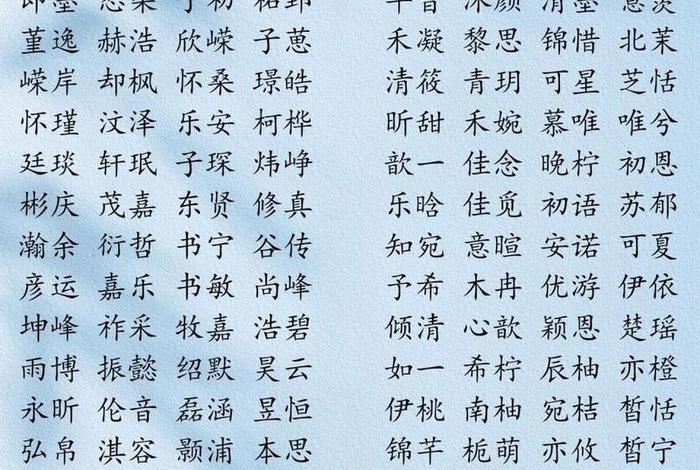 堇逸 赫浩 欣嵘 子葸 禾凝 黎思 锦惜 北茉
嵘岸 却枫 怀桑 璟皓 清筱 青玥 可星 芝恬
怀瑾 汶泽 乐安 柯桦 昕甜 禾婉 慕唯 唯兮
廷琰 轩珉 子琛 炜峥 歆一 佳念 晚柠 初恩
彬庆 茂嘉 东贤 修真 乐晗 佳觅 初语 苏郁
瀚余 衍哲 书宁 谷传 知宛 意暄 安诺 可夏
彦运 嘉乐 书敏 尚峰 予希 木冉 优游 伊依
坤峰 祚采 牧嘉 浩碧 倾清 心歆 颖恩 楚瑶
雨博 振懿 绍默 昊云 如一 希柠 辰柚 亦橙
永昕 伦音 磊涵 昱恒 伊桃 南柚 宛桔 皙恬
弘帛 淇容 颢浦 本思 锦芊 栀萌 亦攸 皙宁